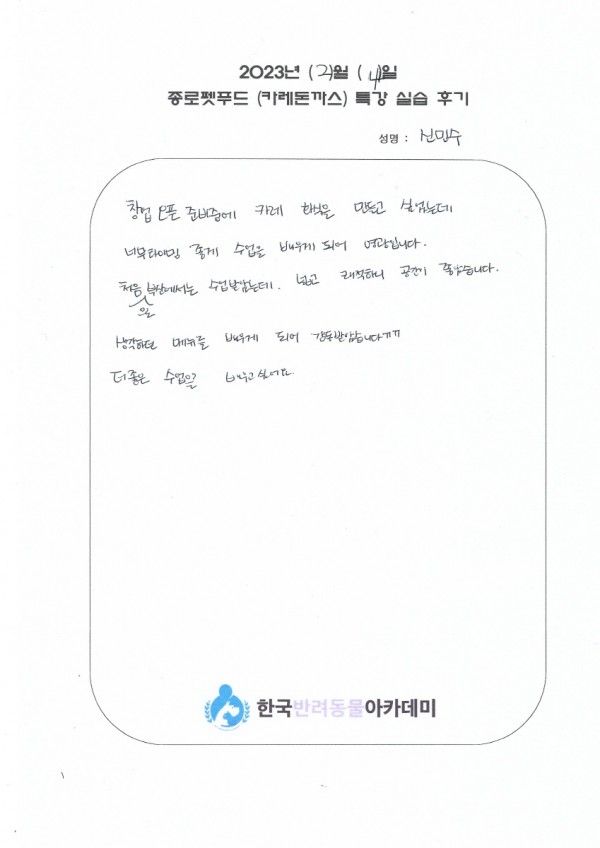 2023년 (2)월 (4)일
종로펫푸드 (카레돈까스) 특강 실습 후기
성명 : 신민수
창업 오픈 준비중에 카레 화식을 만들고 싶었는데
너무타이밍 좋게 수업을 배우게 되어 영광입니다.
처음 부산에서는 수업받았는데. 넓고 쾌적하니 공간이 좋았습니다.
을
생각하던 메뉴를 배우게 되어 감동받았습니다ㅠㅠ
더좋은 수업을 배우고싶어요
한국반려동물아카데미